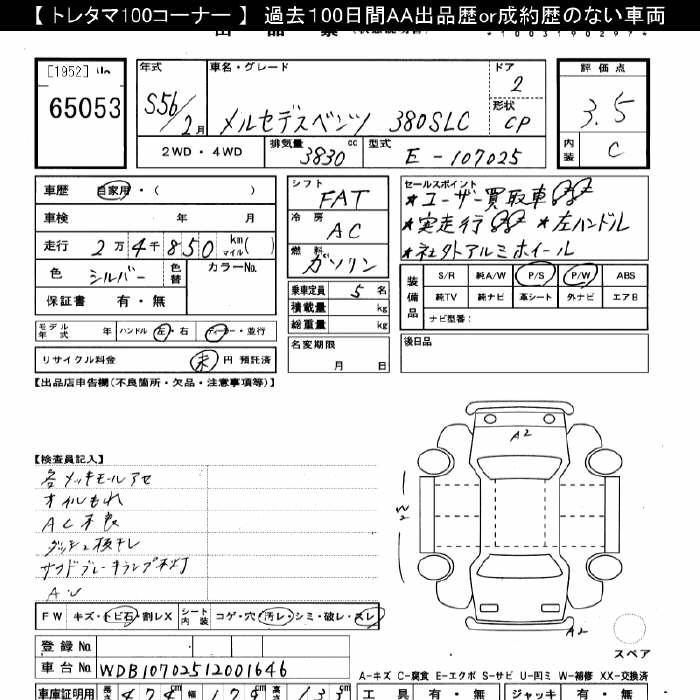 【 トレタマ100コーナー 】 過去100日間AA出品歴or成約歴のない車両
[1952]
65053
年式
S56/2月
車名・グレード
メルセデスベンツ 380SLC
ドア
2
形状
CP
評価点
3.5
内装
C
2WD・4WD
排気量 3830 cc
型式 E-107025
車歴 自家用・( )
車検 年 月
走行 2万4千850 km マイル( )
色 シルバー 色替 カラーNo.
保証書 有・無
モデル年式 年 ハンドル 左・右 ディーラー・並行
リサイクル料金 未 円 預託済
シフト FAT
冷房 AC
燃料 ガソリン
乗車定員 5 名
積載量 kg
総重量 kg
名変期限 月 日
セールスポイント
★ユーザー買取車
★実走行 ★左ハンドル
★社外アルミホイール
装備品
S/R 純A/W P/S P/W ABS
純TV 純ナビ 革シート 外ナビ エアB
ナビ型番:
後日品
【出品店申告欄(不良箇所・欠品・注意事項等)】
【検査員記入】
各メッキモールアセ
オイルもれ
AC不良
サードブレーキランプ不灯
A2
A2
スペア
FW キズ・トビ石・割レX シート内装 コゲ・穴・汚レ・シミ・破レ・スレ
登録No.
車台No. WDB10702512001646
A-キズ C-腐食 E-エクボ S-サビ U-凹ミ W-補修 XX-交換済
車庫証明用 長さ 474 cm 幅 179 cm 高さ
工具 有・無 ジャッキ 有・無